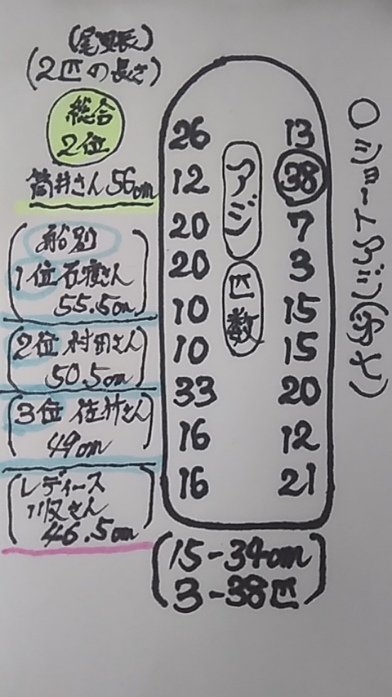 ○ショートアジ(午七)
(尾叉長)
(2匹の長さ)
総合
2位
筒井さん56cm
船別
1位 石渡さん
55.5cm
2位 村田さん
50.5cm
3位 佐竹さん
49cm
レディース
川又さん
46.5cm
アジ 匹数
26 13
12 38
20 7
20 3
10 15
10 15
33 20
16 12
16 21
(15-34cm
3-38匹)